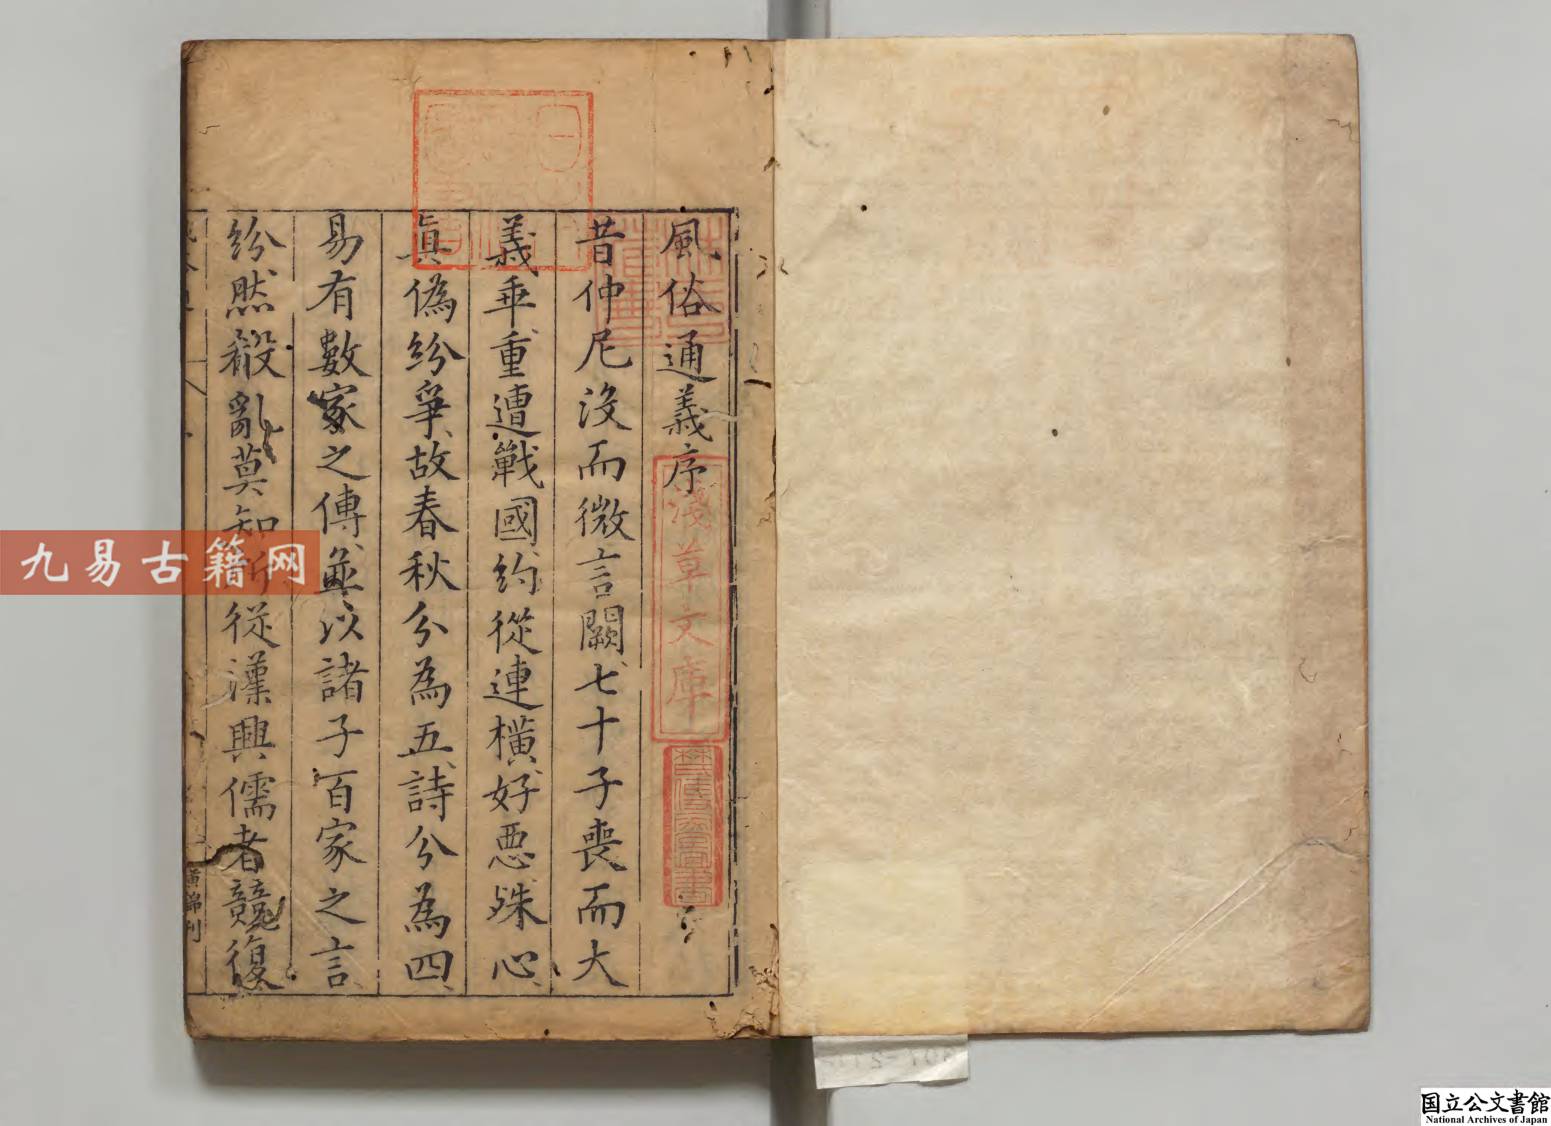 風俗通義序
昔仲尼沒而微言闕七十子喪而大
義乖重遭戰國約從連橫好惡殊心
眞偽紛爭故春秋分為五詩分為四
易有數家之傳並以諸子百家之言
紛然殽亂莫知所從漢興儒者競復
淺草文庫
九易古籍网
国立公文書館
National Archives of Japan